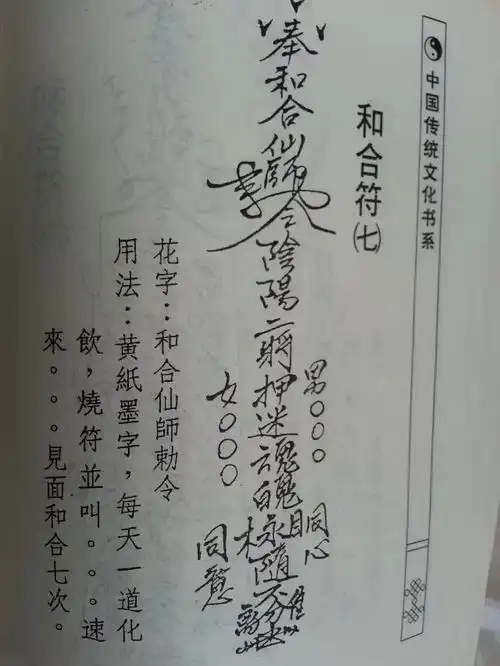 中国传统文化书系
和合符(七)
男○○○
同心
奉和合仙師令陰陽二將押迷魂魄隨不
女○○○
同意
花字：和合仙師勅令
用法：黄紙墨字，每天一道化
飲，燒符並叫。。。速
來。。。見面和合七次。